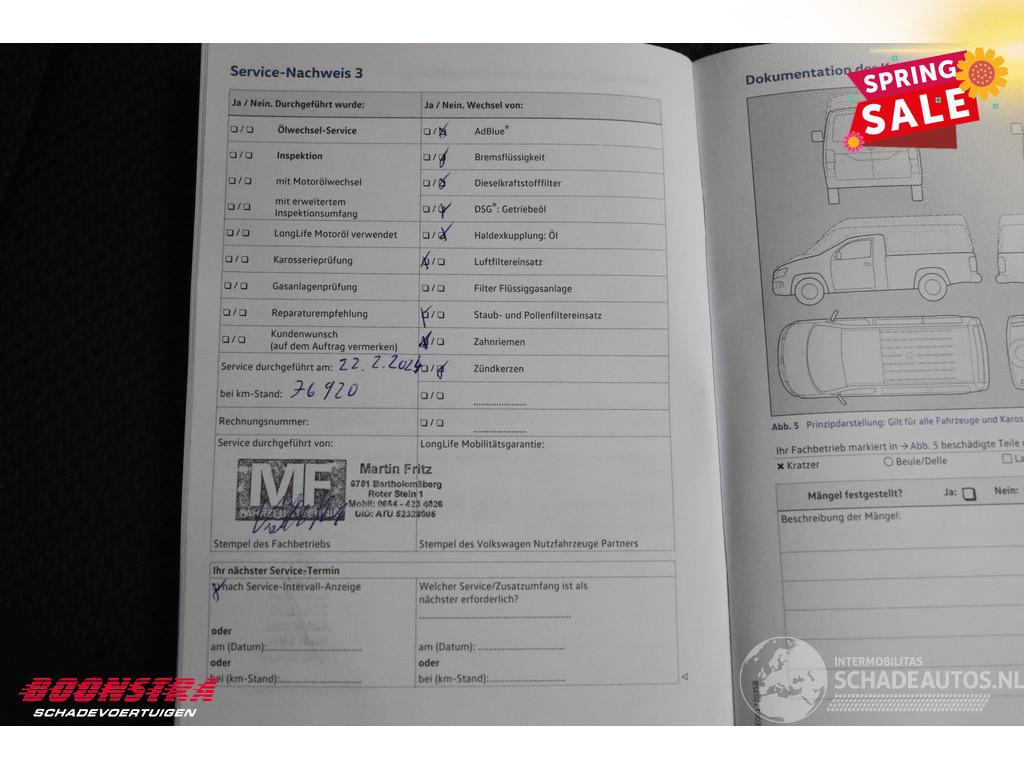 SPRING
SALE
Service-Nachweis 3
Ja / Nein. Durchgeführt wurde: Ja / Nein. Wechsel von:
Ölwechsel-Service AdBlue®
Inspektion Bremsflüssigkeit
mit Motorölwechsel Dieselkraftstofffilter
mit erweitertem
Inspektionsumfang DSG®: Getriebeöl
LongLife Motoröl verwendet Haldexkupplung: Öl
Karosserieprüfung Luftfiltereinsatz
Gasanlagenprüfung Filter Flüssiggasanlage
Reparaturempfehlung Staub- und Pollenfiltereinsatz
Kundenwunsch
(auf dem Auftrag vermerken) Zahnriemen
Service durchgeführt am: 22.2.2024 Zündkerzen
bei km-Stand: 76920
Rechnungsnummer:
Service durchgeführt von: LongLife Mobilitätsgarantie:
MF
FAHRZEUGTECHNIK
Martin Fritz
6781 Bartholomäberg
Roter Stein 1
Mobil: 0664 - 423 4026
UID: ATU 52328905
Stempel des Fachbetriebs Stempel des Volkswagen Nutzfahrzeuge Partners
Ihr nächster Service-Termin
nach Service-Intervall-Anzeige Welcher Service/Zusatzumfang ist als
nächster erforderlich?
oder
am (Datum): am (Datum):
oder oder
bei (km-Stand): bei (km-Stand):
Dokumentation der
Abb. 5 Prinzipdarstellung: Gilt für alle Fahrzeuge und Karos
Ihr Fachbetrieb markiert in → Abb. 5 beschädigte Teile
Kratzer Beule/Delle La
Mängel festgestellt? Ja: Nein:
Beschreibung der Mängel:
BOONSTRA
SCHADEVOERTUIGEN
INTERMOBILITAS
SCHADEAUTOS.NL